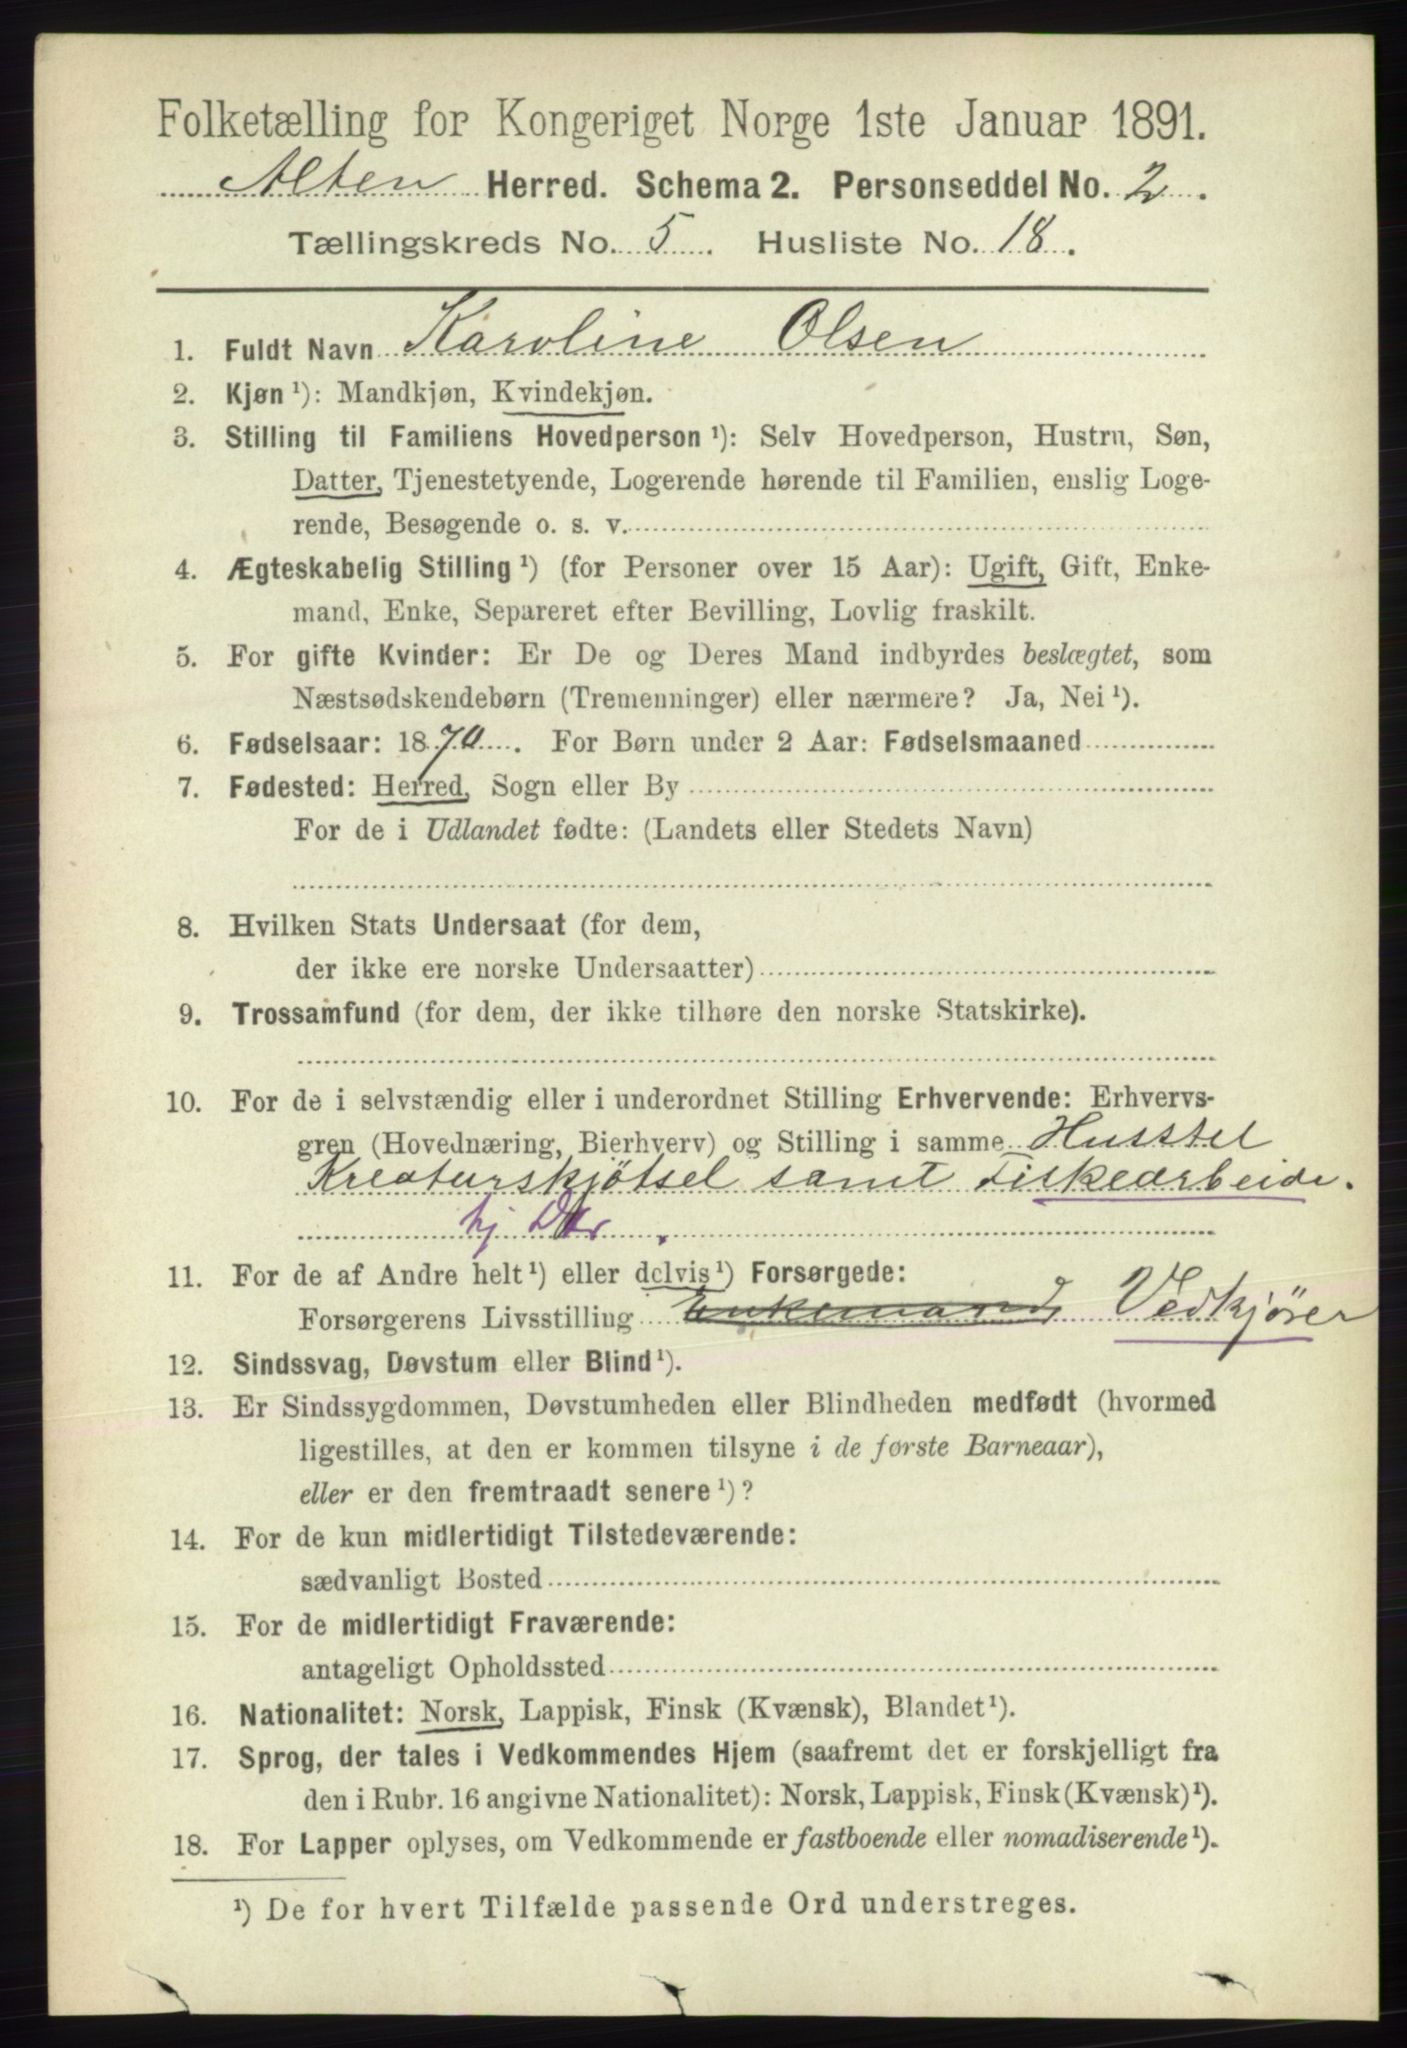 Folketælling for Kongeriget Norge 1ste Januar 1891.
Alten Herred. Schema 2. Personseddel No. 2.
Tællingskreds No. 5. Husliste No. 18.
1. Fuldt Navn Karoline Olsen
2. Kjøn ¹): Mandkjøn, Kvindekjøn.
3. Stilling til Familiens Hovedperson ¹): Selv Hovedperson, Hustru, Søn,
Datter, Tjenestetyende, Logerende hørende til Familien, enslig Loge-
rende, Besøgende o. s. v.
4. Ægteskabelig Stilling ¹) (for Personer over 15 Aar): Ugift, Gift, Enke-
mand, Enke, Separeret efter Bevilling, Lovlig fraskilt.
5. For gifte Kvinder: Er De og Deres Mand indbyrdes beslægtet, som
Næstsødskendebørn (Tremenninger) eller nærmere? Ja, Nei ¹).
6. Fødselsaar: 1870. For Børn under 2 Aar: Fødselsmaaned
7. Fødested: Herred, Sogn eller By
For de i Udlandet fødte: (Landets eller Stedets Navn)
8. Hvilken Stats Undersaat (for dem,
der ikke ere norske Undersaatter)
9. Trossamfund (for dem, der ikke tilhøre den norske Statskirke).
10. For de i selvstændig eller i underordnet Stilling Erhvervende: Erhvervs-
gren (Hovednæring, Bierhverv) og Stilling i samme Husstel
Kreaturskjøtsel samt Fiskearbeide.
hj Dtr.
11. For de af Andre helt ¹) eller delvis ¹) Forsørgede:
Forsørgerens Livsstilling Enkemand, Vedkjører
12. Sindssvag, Døvstum eller Blind ¹).
13. Er Sindssygdommen, Døvstumheden eller Blindheden medfødt (hvormed
ligestilles, at den er kommen tilsyne i de første Barneaar),
eller er den fremtraadt senere ¹)?
14. For de kun midlertidigt Tilstedeværende:
sædvanligt Bosted
15. For de midlertidigt Fraværende:
antageligt Opholdssted
16. Nationalitet: Norsk, Lappisk, Finsk (Kvænsk), Blandet ¹).
17. Sprog, der tales i Vedkommendes Hjem (saafremt det er forskjelligt fra
den i Rubr. 16 angivne Nationalitet): Norsk, Lappisk, Finsk (Kvænsk) ¹).
18. For Lapper oplyses, om Vedkommende er fastboende eller nomadiserende ¹).
¹) De for hvert Tilfælde passende Ord understreges.